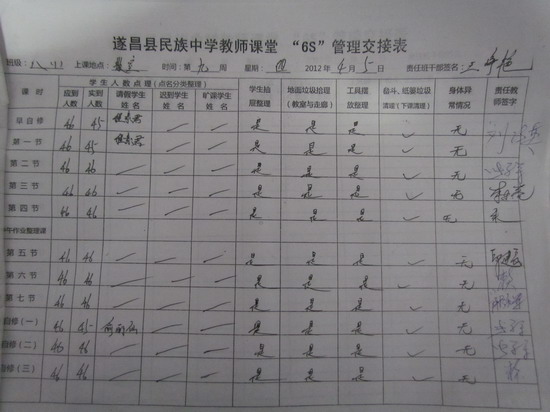 遂昌县民族中学教师课堂 “6S”管理交接表
班级: 上课地点: 时间:第 九 周 星期: 四 2012 年 4 月 5 日 责任班干部签名:
课 时 学 生 人 数 点 理 (点名分类整理) 学生抽屉整理 地面垃圾拾理(教室与走廊) 工具摆放整理 畚斗、纸篓垃圾清理(下课清理) 身体异常情况 责任教师签字
应到人数 实到人数 请假学生姓名 迟到学生姓名 旷课学生姓名
早自修 46 45 是 是 是 ✓ 无
第一节 46 45 是 是 是 ✓ 无
第二节 46 46 是 是 是 ✓ 无
第三节 46 46 是 是 是 ✓ 无
第四节 46 46 是 是 是 ✓ 无
午作业整理课
第五节 46 46 是 是 是 ✓ 无
第六节 46 46 是 是 是 ✓ 无
第七节 46 46 是 是 是 ✓ 无
自修(一) 46 45 是 是 是 ✓ 无
自修(二) 46 46 是 是 是 ✓ 无
自修(三) 46 46 是 是 是 ✓ 无